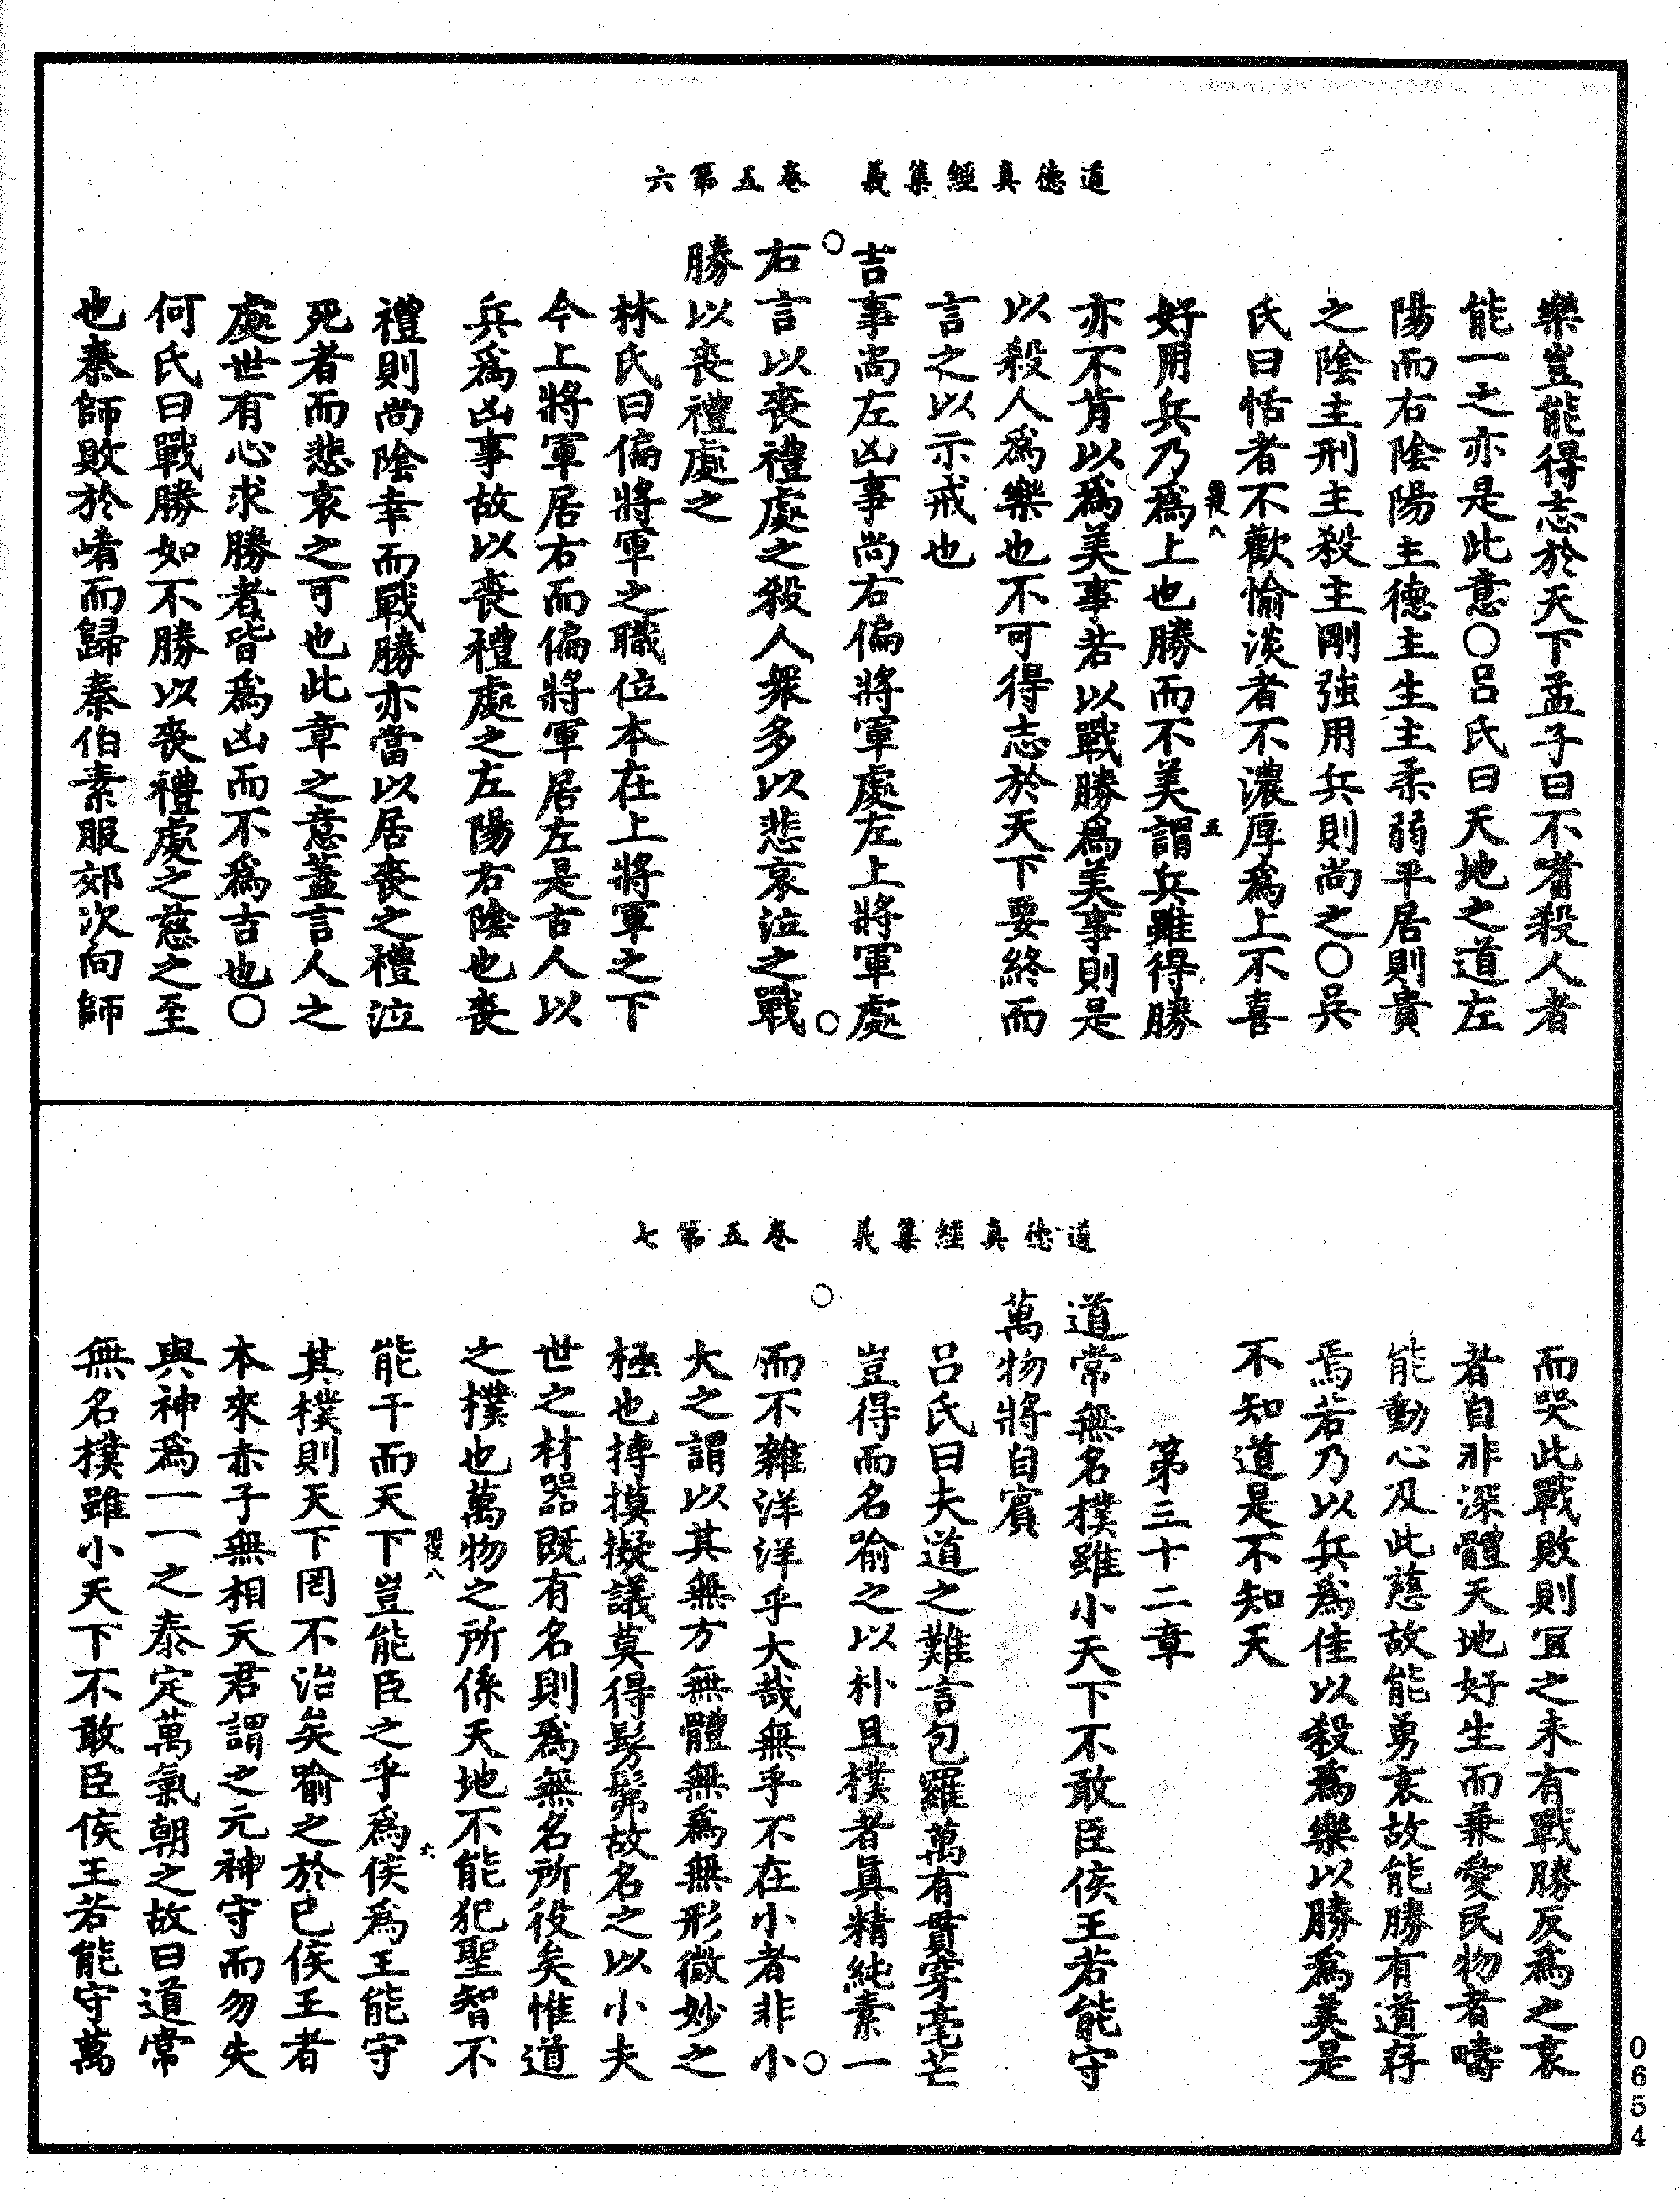 道德真經集義　卷五第六
樂豈能得志於天下孟子曰不嗜殺人者
能一之亦是此意○呂氏曰天地之道左
陽而右陰陽主德主生主柔弱平居則貴
之陰主刑主殺主剛強用兵則尚之○吳
氏曰恬者不歡愉淡者不濃厚爲上不喜
好用兵乃爲上也勝而不美謂兵雖得勝
亦不肯以爲美事若以戰勝爲美事則是
以殺人爲樂也不可得志於天下要終而
言之以示戒也
吉事尚左凶事尚右偏將軍處左上將軍處
右言以喪禮處之殺人衆多以悲哀泣之戰
勝以喪禮處之
林氏曰偏將軍之職位本在上將軍之下
今上將軍居右而偏將軍居左是古人以
兵爲凶事故以喪禮處之左陽右陰也喪
禮則尚陰幸而戰勝亦當以居喪之禮泣
死者而悲哀之可也此章之意蓋言人之
處世有心求勝者皆爲凶而不爲吉也○
何氏曰戰勝如不勝以喪禮處之慈之至
也秦師敗於崤而歸秦伯素服郊次向師
道德真經集義　卷五第七
而哭此戰敗則宜之未有戰勝反爲之哀
者自非深體天地好生而兼愛民物者疇
能動心及此慈故能勇哀故能勝有道存
焉若乃以兵爲佳以殺爲樂以勝爲美是
不知道是不知天
第三十二章
道常無名樸雖小天下不敢臣侯王若能守
萬物將自賓
呂氏曰夫道之難言包羅萬有貫穿毫芒
豈得而名喻之以朴且樸者眞精純素一
而不雜洋洋乎大哉無乎不在小者非小
大之謂以其無方無體無爲無形微妙之
極也摶摸擬議莫得髣髴故名之以小夫
世之材器既有名則爲無名所役矣惟道
之樸也萬物之所係天地不能犯聖智不
能干而天下豈能臣之乎爲侯爲王能守
其樸則天下罔不治矣喻之於已侯王者
本來赤子無相天君謂之元神守而勿失
與神爲一一之泰定萬氣朝之故曰道常
無名樸雖小天下不敢臣侯王若能守萬
0654